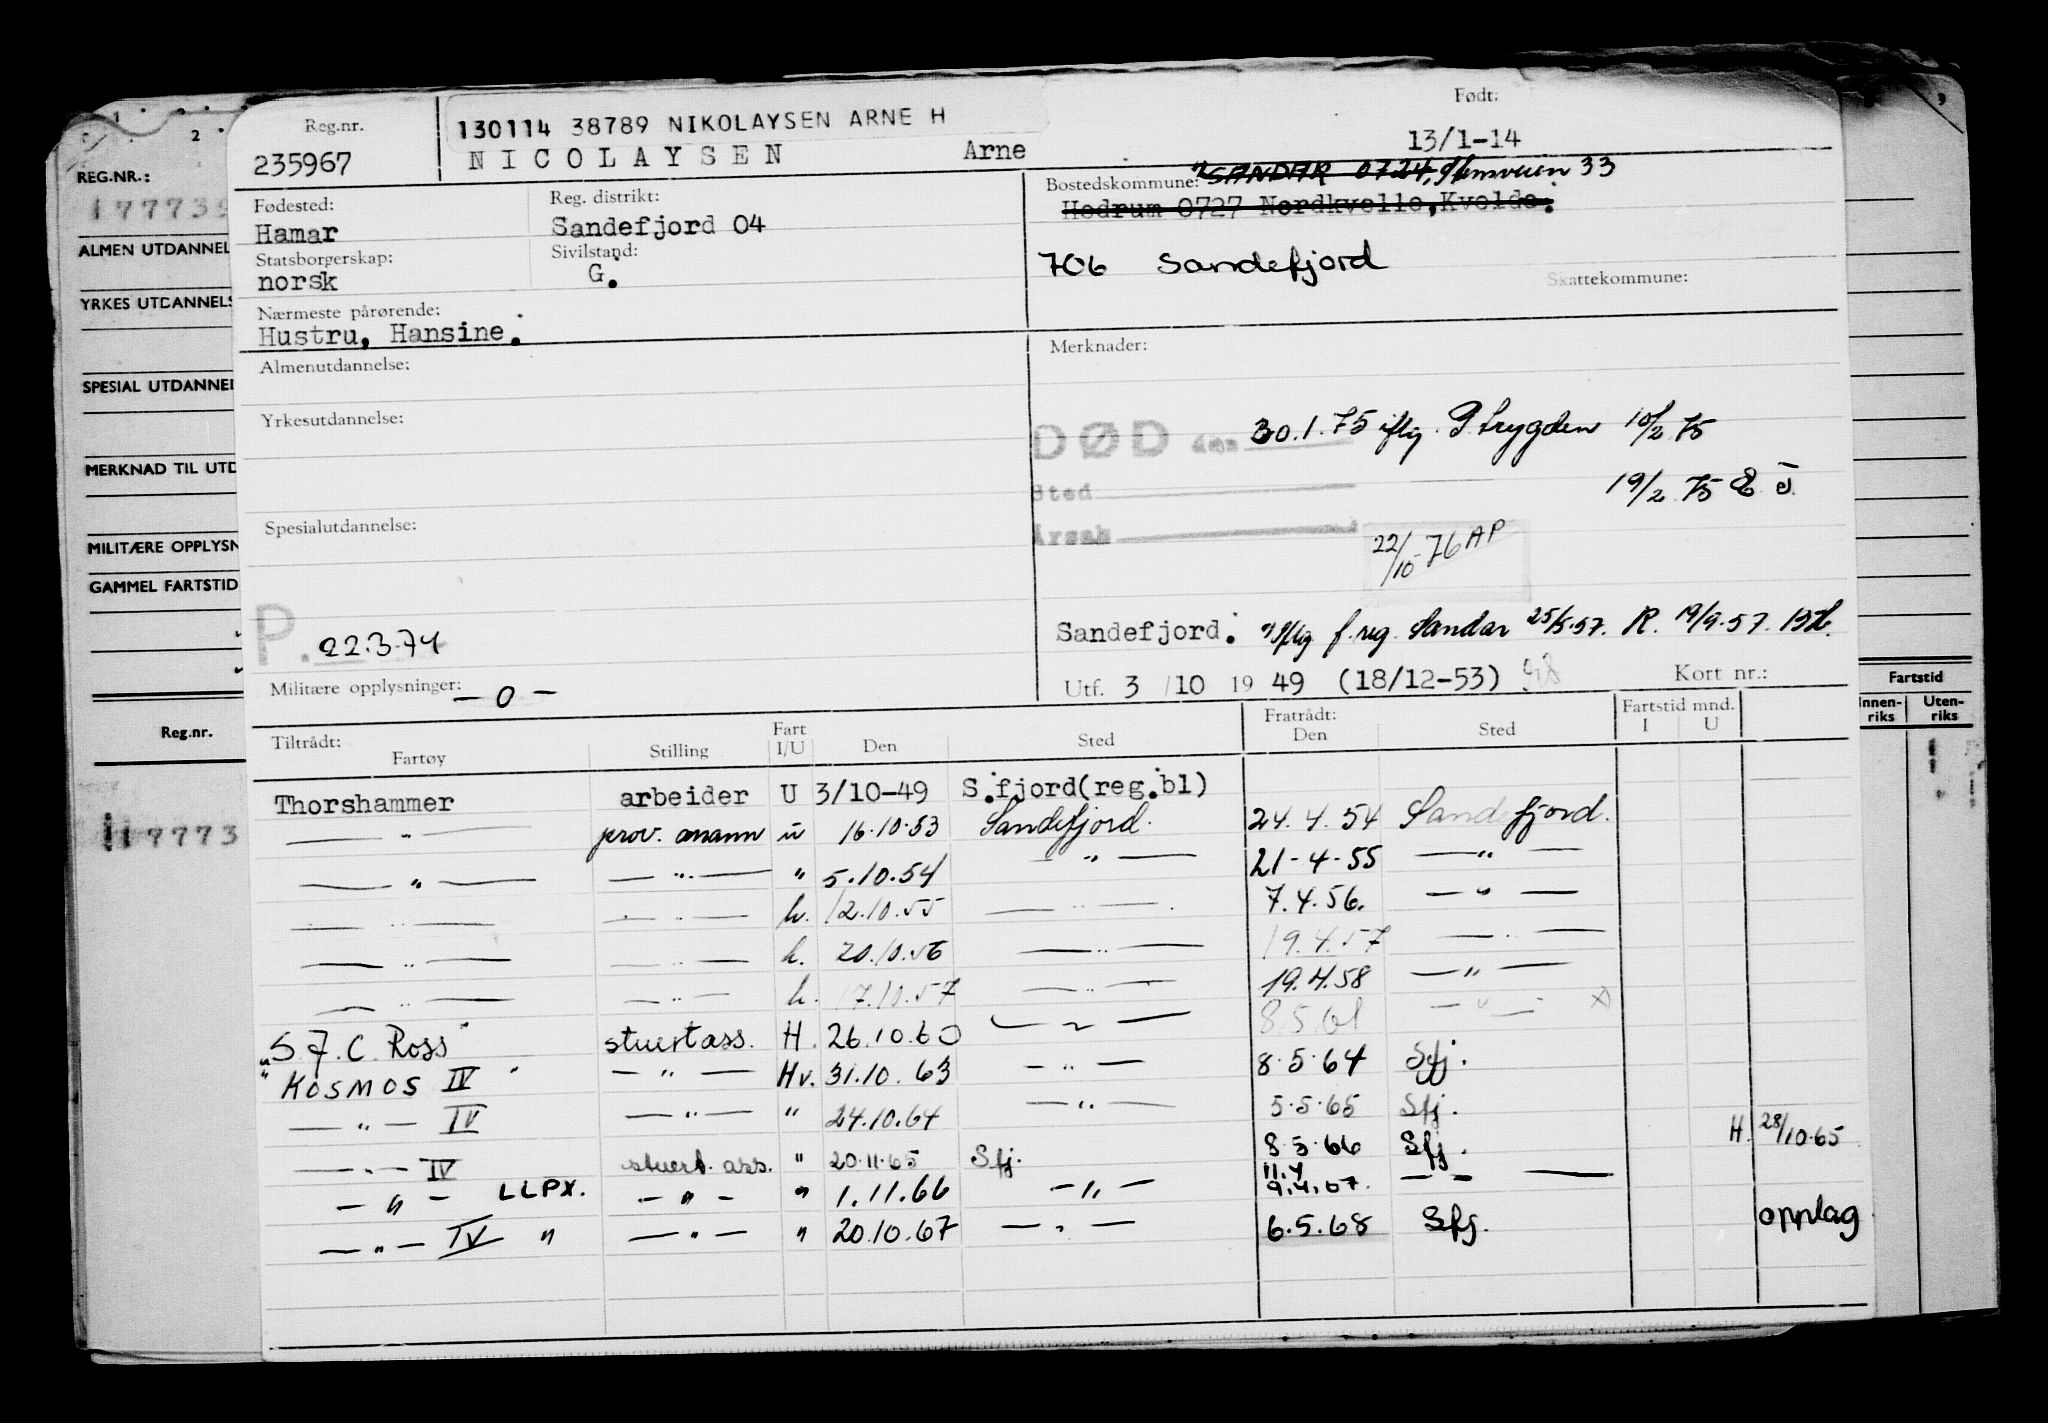 Reg.nr.
235967
130114 38789 NIKOLAYSEN ARNE H
NICOLAYSEN Arne
Født:
13/1-14
Fødested:
Hamar
Reg. distrikt:
Sandefjord 04
Statsborgerskap:
norsk
Sivilstand:
G.
Nærmeste pårørende:
Hustru, Hansine.
Bostedskommune: SANDAR 0724, 33
Hedrum 0727 Nordkvelle, Kvelde.
706 Sandefjord
Skattekommune:
Almenutdannelse:
Yrkesutdannelse:
Spesialutdannelse:
P. 22.3.74
Militære opplysninger: - 0 -
Merknader:
DØD den 30.1.75 iflg. P.trygden 10/2 75
Sted
19/2 75
Årsak
22/10-76 AP
Sandefjord. iflg f. reg. Sandar 25/5.57. R. 19/9.57.
Utf. 3/10 1949 (18/12-53)
Kort nr.:
Tiltrådt: Fartøy Stilling Fart I/U Den Sted Fratrådt: Den Sted Fartstid mnd. I U
Thorshammer arbeider U 3/10-49 S.fjord(reg.bl)
— " — prov. mann u 16.10.53 Sandefjord. 24.4.54 Sandefjord.
— " — — " — " 5.10.54 — " — 21-4-55 — " —
— " — — " — h. 12.10.55 — " — 7.4.56. — " —
— " — — " — h. 20.10.56 — " — 19.4.57 — " —
— " — — " — h. 17.10.57 — " — 19.4.58 — " —
"S J. C. Ross" stuertass. H. 26.10.60 — " — 8.5.61 — " — x)
"KOSMOS IV" — " — Hv. 31.10.63 — " — 8.5.64 Sfj.
— " — IV — " — " 24.10.64 — " — 5.5.65 Sfj.
— " — IV stuert. ass. " 20.11.65 Sfj. 8.5.66 Sfj. H. 28/10.65
— " — LLPX. — " — " 1.11.66 — " — 11.4 9.4.67. — " —
— " — IV " — " — " 20.10.67 — " — 6.5.68 Sfj. opplag
1
2
9
REG.NR.:
177739
ALMEN UTDANNEL
YRKES UTDANNELS
SPESIAL UTDANNEL
MERKNAD TIL UTD
MILITÆRE OPPLYSN
GAMMEL FARTSTID
Reg.nr.
17773
Fartstid
Innen-riks
Uten-riks